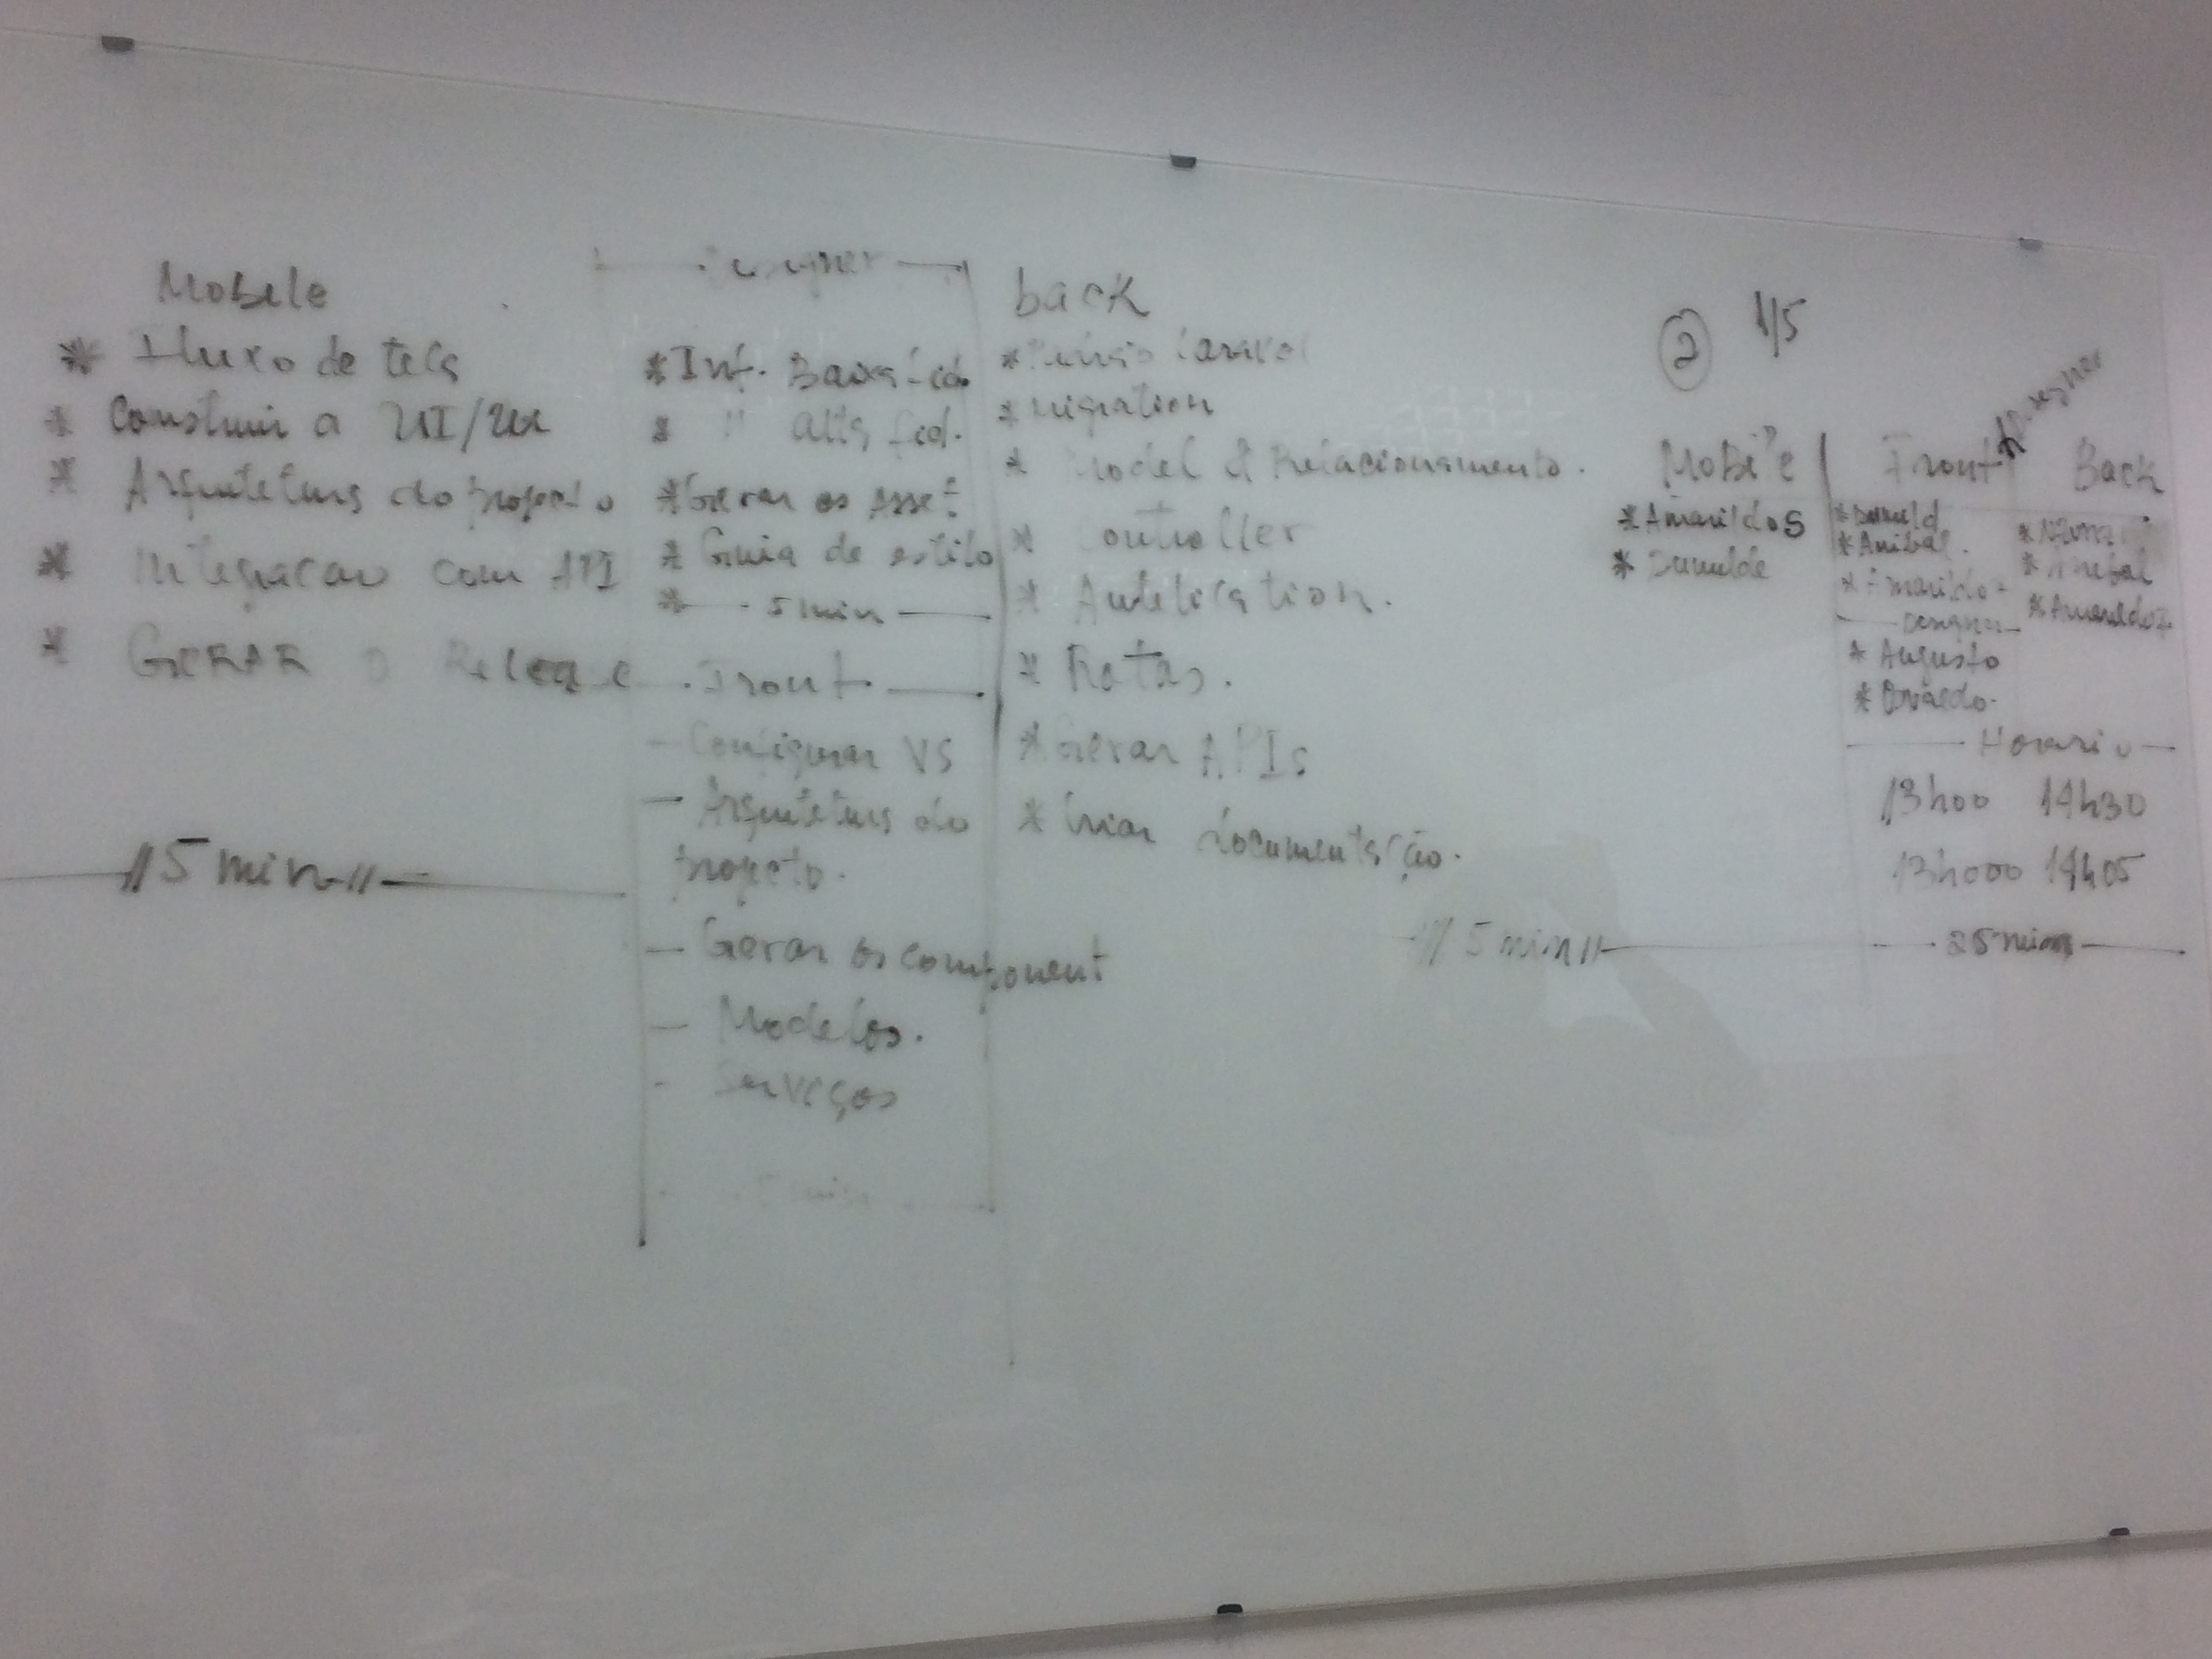 Mobile
* Fluxo de tela
* Construir a UI/UX
* Arquitetura do projeto
* Integracao com API
* GERAR O Release
//5 min//
* Int. Baixa fid.
* " alta fid.
* Gerar os Asset
* Guia de estilo
* 5 min
Front
- Configurar VS
- Arquitetura do
projeto.
- Gerar os component
- Modelos.
- Serviços
5 min
back
* Laravel
* Migration
* Model & Relacionamento.
* Controller
* Autetication.
* Rotas.
* Gerar APIs
* Criar documentação.
//5 min//
2 1/5
Designer
Mobile Front Back
* Amarildo S
* Anibal.
* Amarildo
Designer
* Augusto
* Osvaldo.
* Anibal
* Amarildo
Horario
13h00 14h30
13h000 14h05
25 min